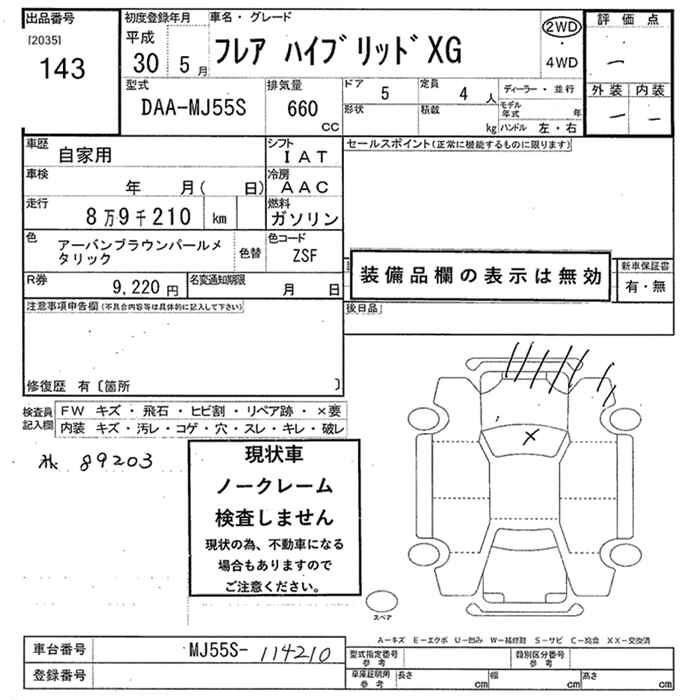 出品番号
[2035]
143
初度登録年月
平成
30 5 月
車名・グレード
フレア ハイブリッドXG
2WD
・
4WD
評価点
一
外装 内装
一 一
型式
DAA-MJ55S
排気量
660
CC
ドア
5
定員
4 人
ディーラー・並行
形状
積載
kg
モデル年式 年
ハンドル 左・右
車歴
自家用
シフト
IAT
セールスポイント(正常に機能するものに限ります)
車検
年 月( 日)
冷房
AAC
走行
8万9千210 km
燃料
ガソリン
色
アーバンブラウンパールメ
タリック
色替
色コード
ZSF
装備品欄の表示は無効
新車保証書
有・無
R券
9,220 円
名変通知期限
月 日
後日品
注意事項申告欄(不具合内容等は具体的に記入して下さい)
修復歴 有〔箇所 〕
検査員
記入欄
FW キズ・飛石・ヒビ割・リペア跡・×要
内装 キズ・汚レ・コゲ・穴・スレ・キレ・破レ
89203
現状車
ノークレーム
検査しません
現状の為、不動車になる
場合もありますので
ご注意ください。
スペア
A-キズ E-エクボ U-凹み W-補修跡 S-サビ C-腐食 XX-交換済
車台番号
MJ55S- 114210
登録番号
型式指定番号
参考
類別区分番号
参考
車庫証明用
参考
長さ cm
幅 cm
高さ cm